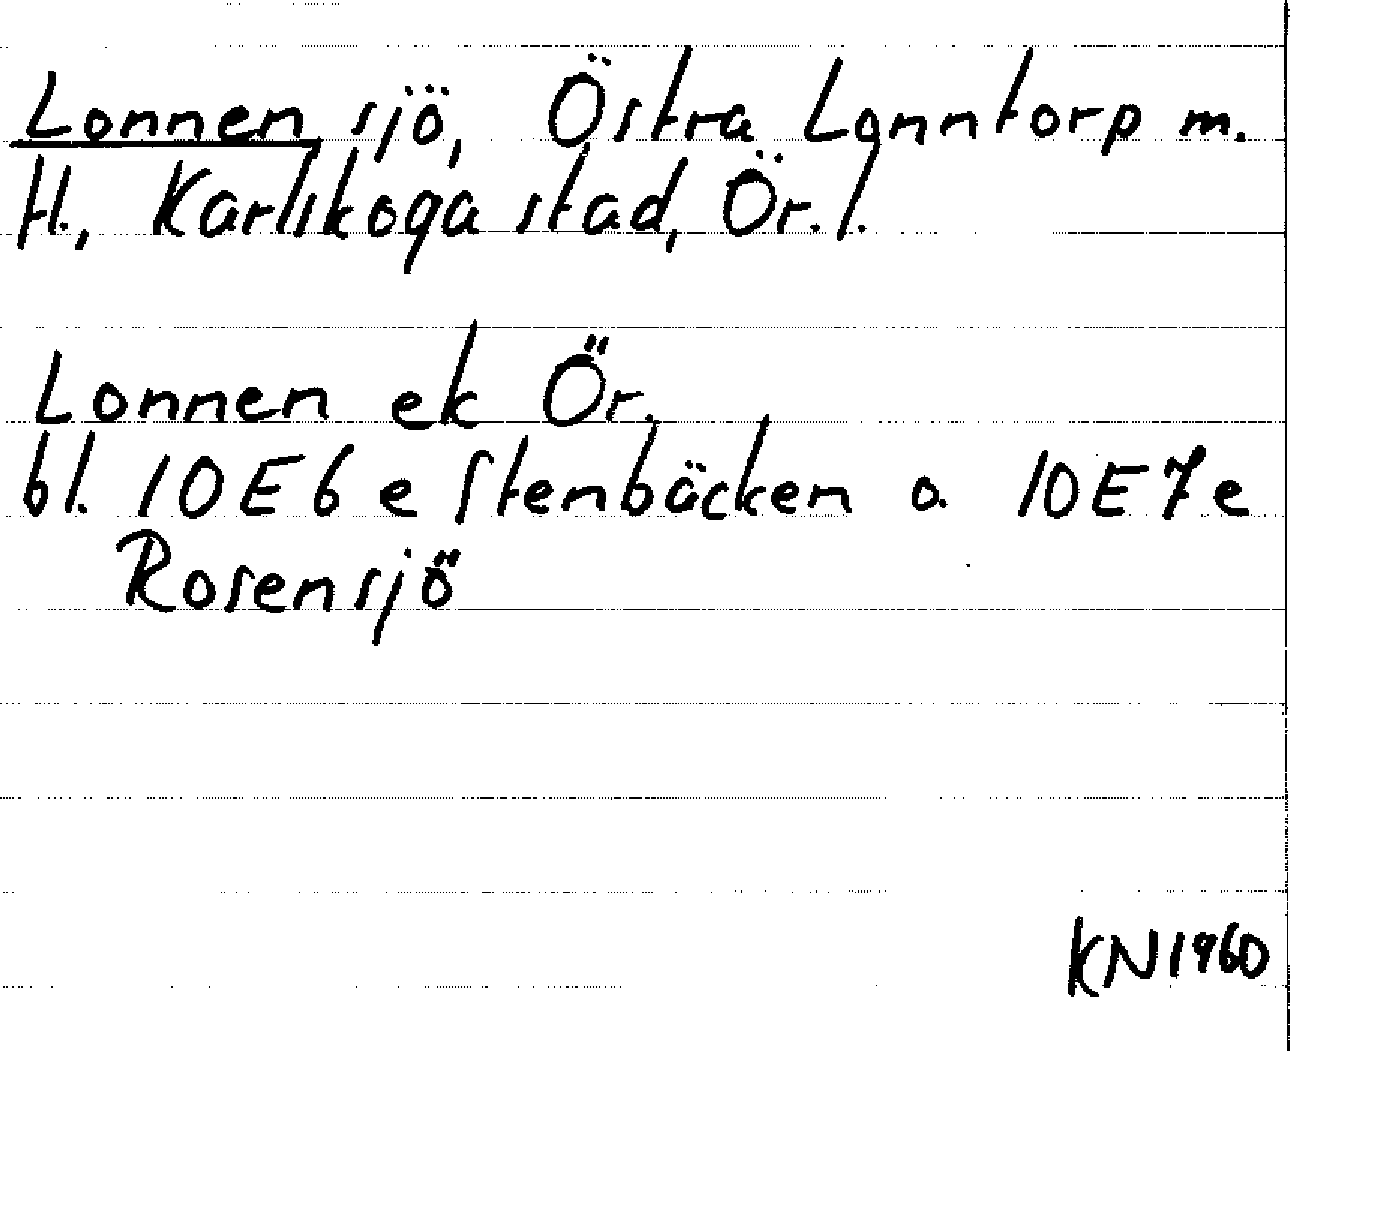 Lonnen, sjö, Östra Lonntorp m.
fl., Karlskoga stad, Ör. l.
Lonnen ek Ör.
bl. 10E6e Stenbäcken o. 10E7e
Rosensjö
KN1960